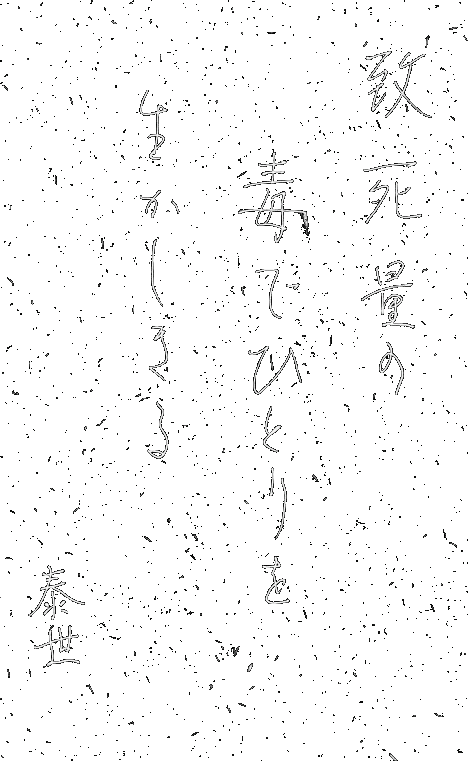 致死量の
毒でひとりを
生かしきる
泰世